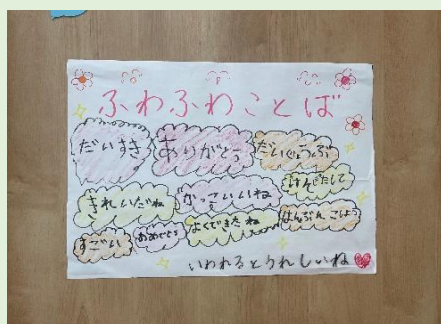 ふわふわことば
だいすき
ありがとう
だいじょうぶ
きれいだね
かっこいいね
げんきだして
すごい
おめでとう
よくできたね
はんぶんこしよう
いわれるとうれしいね